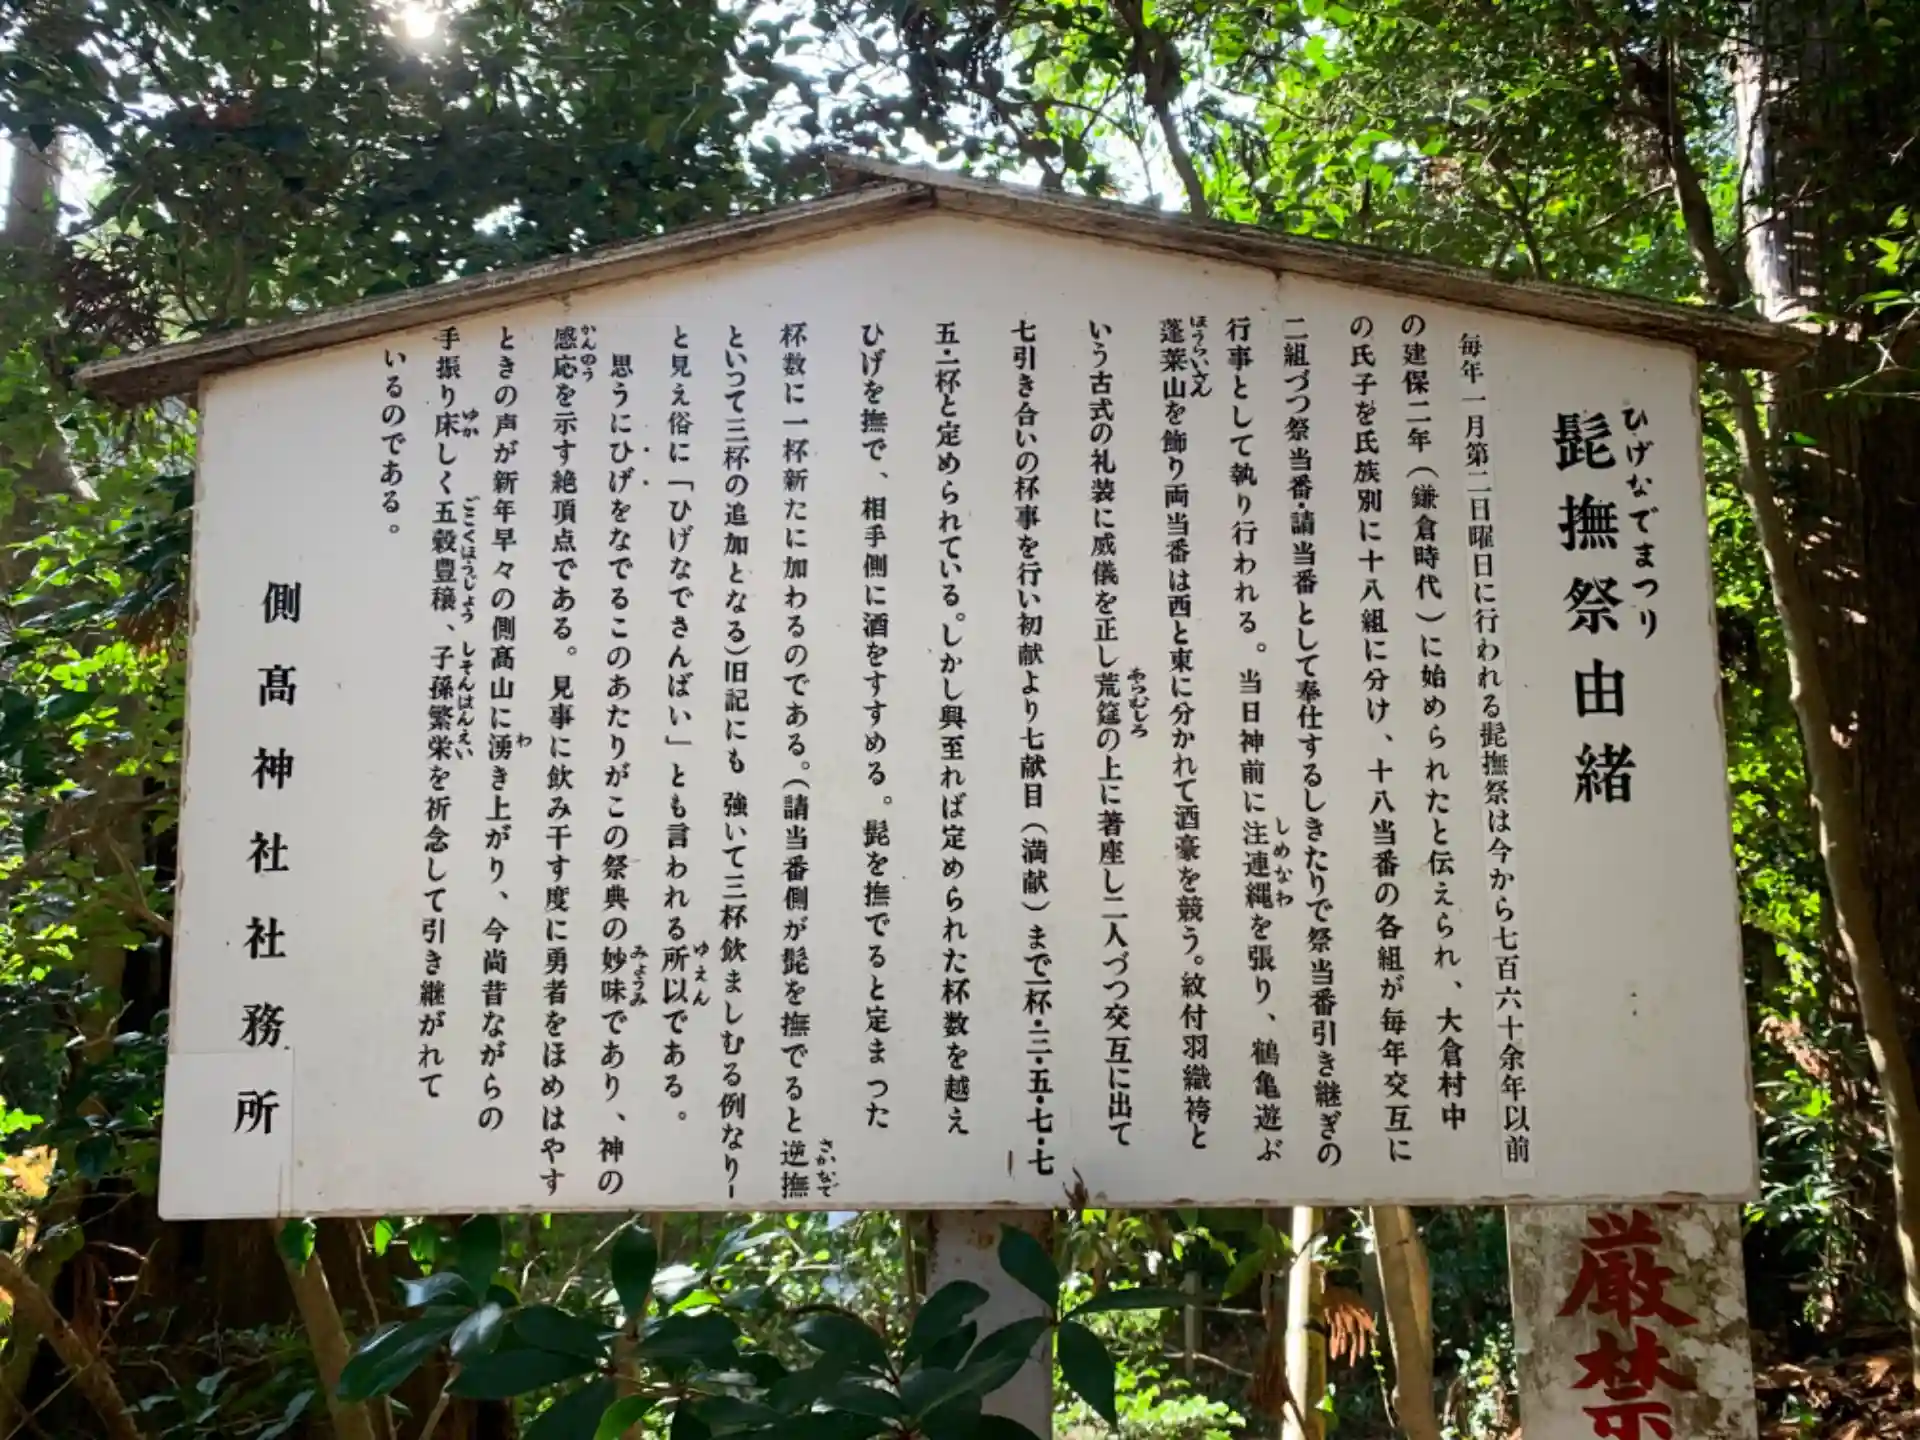 髭撫祭由緒
ひげなでまつり
毎年一月第二日曜日に行われる髭撫祭は今から七百六十余年以前
の建保二年（鎌倉時代）に始められたと伝えられ、大倉村中
の氏子を氏族別に十八組に分け、十八当番の各組が毎年交互に
二組づつ祭当番・請当番として奉仕するしきたりで祭当番引き継ぎの
行事として執り行われる。当日神前に注連縄を張り、鶴亀遊ぶ
しめなわ
蓬莱山を飾り両当番は西と東に分かれて酒豪を競う。紋付羽織袴と
ほうらいさん
いう古式の礼装に威儀を正し荒筵の上に著座し二人づつ交互に出て
あらむしろ
七引き合いの杯事を行い初献より七献目（満献）まで一杯・三・三・五・七・七
五・一杯と定められている。しかし興至れば定められた杯数を越え
ひげを撫で、相手側に酒をすすめる。髭を撫でると定まった
杯数に一杯新たに加わるのである。（請当番側が髭を撫でると逆撫
さかなで
といって三杯の追加となる）旧記にも 強いて三杯飲ましむる例なり―
と見え俗に「ひげなでさんばい」とも言われる所以である。
ゆえん
思うにひげをなでるこのあたりがこの祭典の妙味であり、神の
みょうみ
感応を示す絶頂点である。見事に飲み干す度に勇者をほめはやす
かんのう
ときの声が新年早々の側髙山に湧き上がり、今尚昔ながらの
わ
手振り床しく五穀豊穣、子孫繁栄を祈念して引き継がれて
ゆか ごこくほうじょう しそんはんえい
いるのである。
側髙神社社務所
厳禁